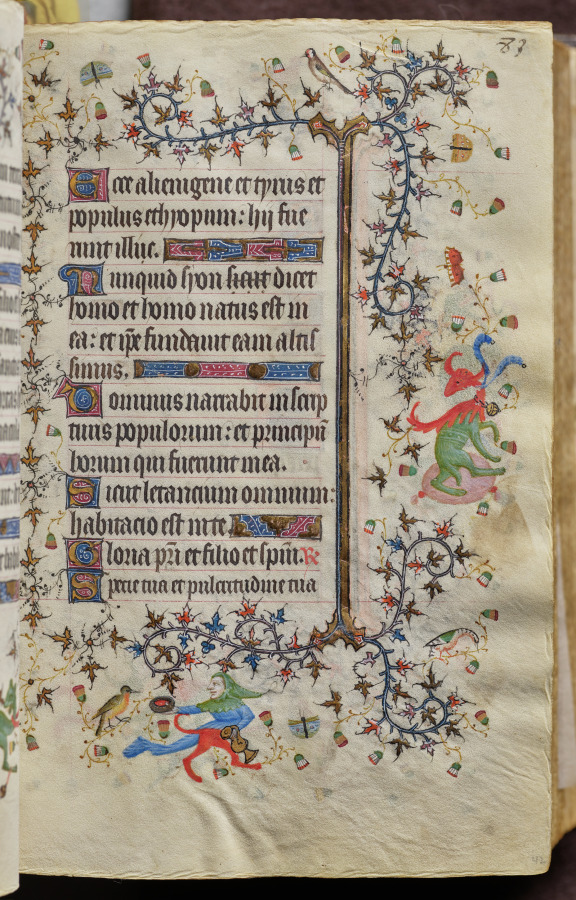 83
Ecce alienigene et tyrus et
populus ethyopum: hij fue
runt illuc.
Nunquid syon dicet
homo et homo natus est in
ea: et ip̄e fundauit eam altis
simus.
Dominus narrabit in scrip
turis populorum: et principū
horum qui fuerunt in ea.
Sicut letancium omnium:
habitacio est in te
Gloria pr̄i et filio et spūi. Re
Specie tua et pulcritudine tua
42